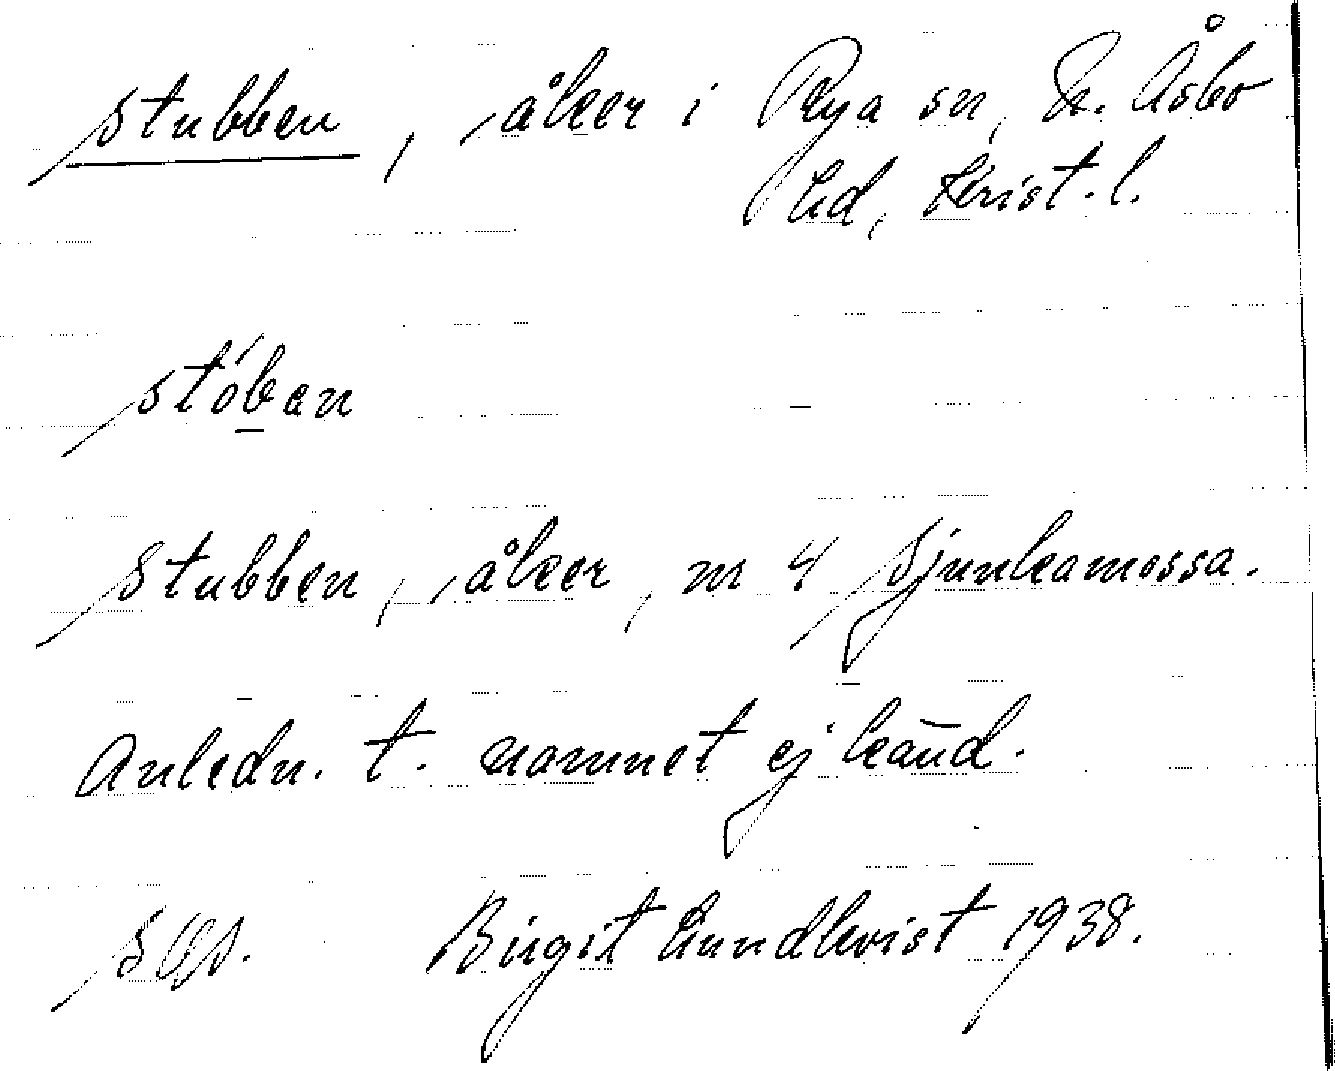 Stubben, åker i Rya sn, N. Åsbo
hd, Krist. l.
stóban
Stubben, åker, nr 4 Sjunkamossa.
Anledn. t. namnet ej känd.
Birgit Lundkvist 1938.